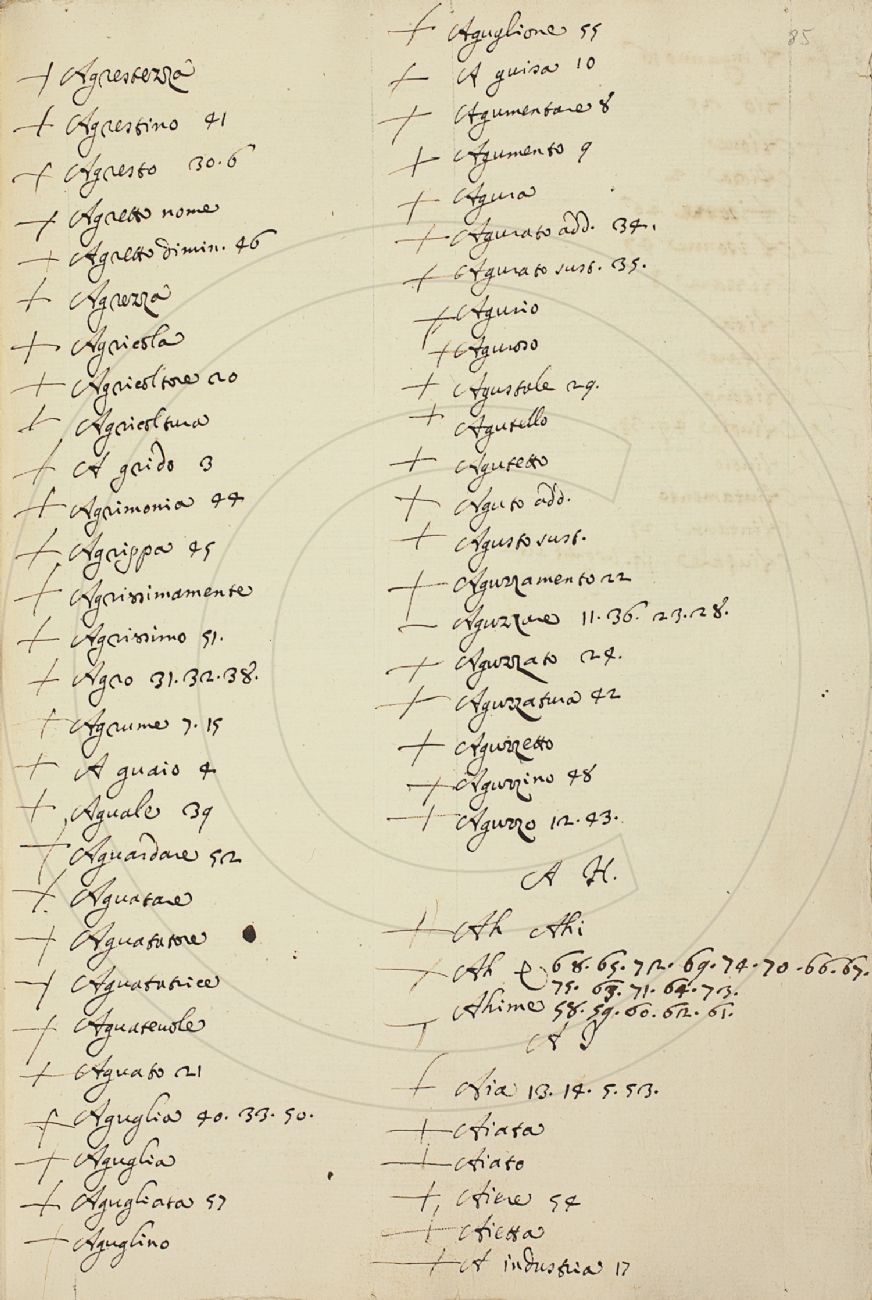 85
+ Agrestezza
+ Agrestino 41
+ Agresto 30. 6
+ Agretto nome
+ Agretto dimin. 46
+ Agrezza
+ Agricola
+ Agricoltore 20
+ Agricoltura
+ A grido 3
+ Agrimonia 44
+ Agrippa 45
+ Agrissimamente
+ Agrissimo 51.
+ Agro 31. 32. 38.
+ Agrume 7. 15
+ A guaio 4
+ Aguale 39
+ Aguardare 52
+ Aguatare
+ Aguatatore
+ Aguatatrice
+ Aguatevole
+ Aguato 21
+ Aguglia 40. 33. 50.
+ Aguglia
+ Agugliata 57
+ Aguglino
+ Aguglione 55
+ A guisa 10
+ Agumentare 8
+ Agumento 9
+ Agura
+ Agurato add. 34.
+ Agurato sust. 35.
+ Agurio
+ Aguroso
+ Agustale 29.
+ Agutello
+ Agutetto
+ Aguto add.
+ Aguto sust.
+ Aguzzamento 22
– Aguzzare 11. 36. 23. 28.
+ Aguzzato 24.
+ Aguzzatura 42
+ Aguzzetto
+ Aguzzino 48
+ Aguzzo 12. 43.
A H.
+ Ah Ahi
+ Ah e 68. 65. 72. 69. 74. 70. 66. 67.
75. 63. 71. 64. 73.
Ahime 58. 59. 60. 62. 61.
A I
+ Aia 13. 14. 5. 53.
+ Aiata
+ Aiato
+ Aiere 54
+ Aietta
+ A industria 17